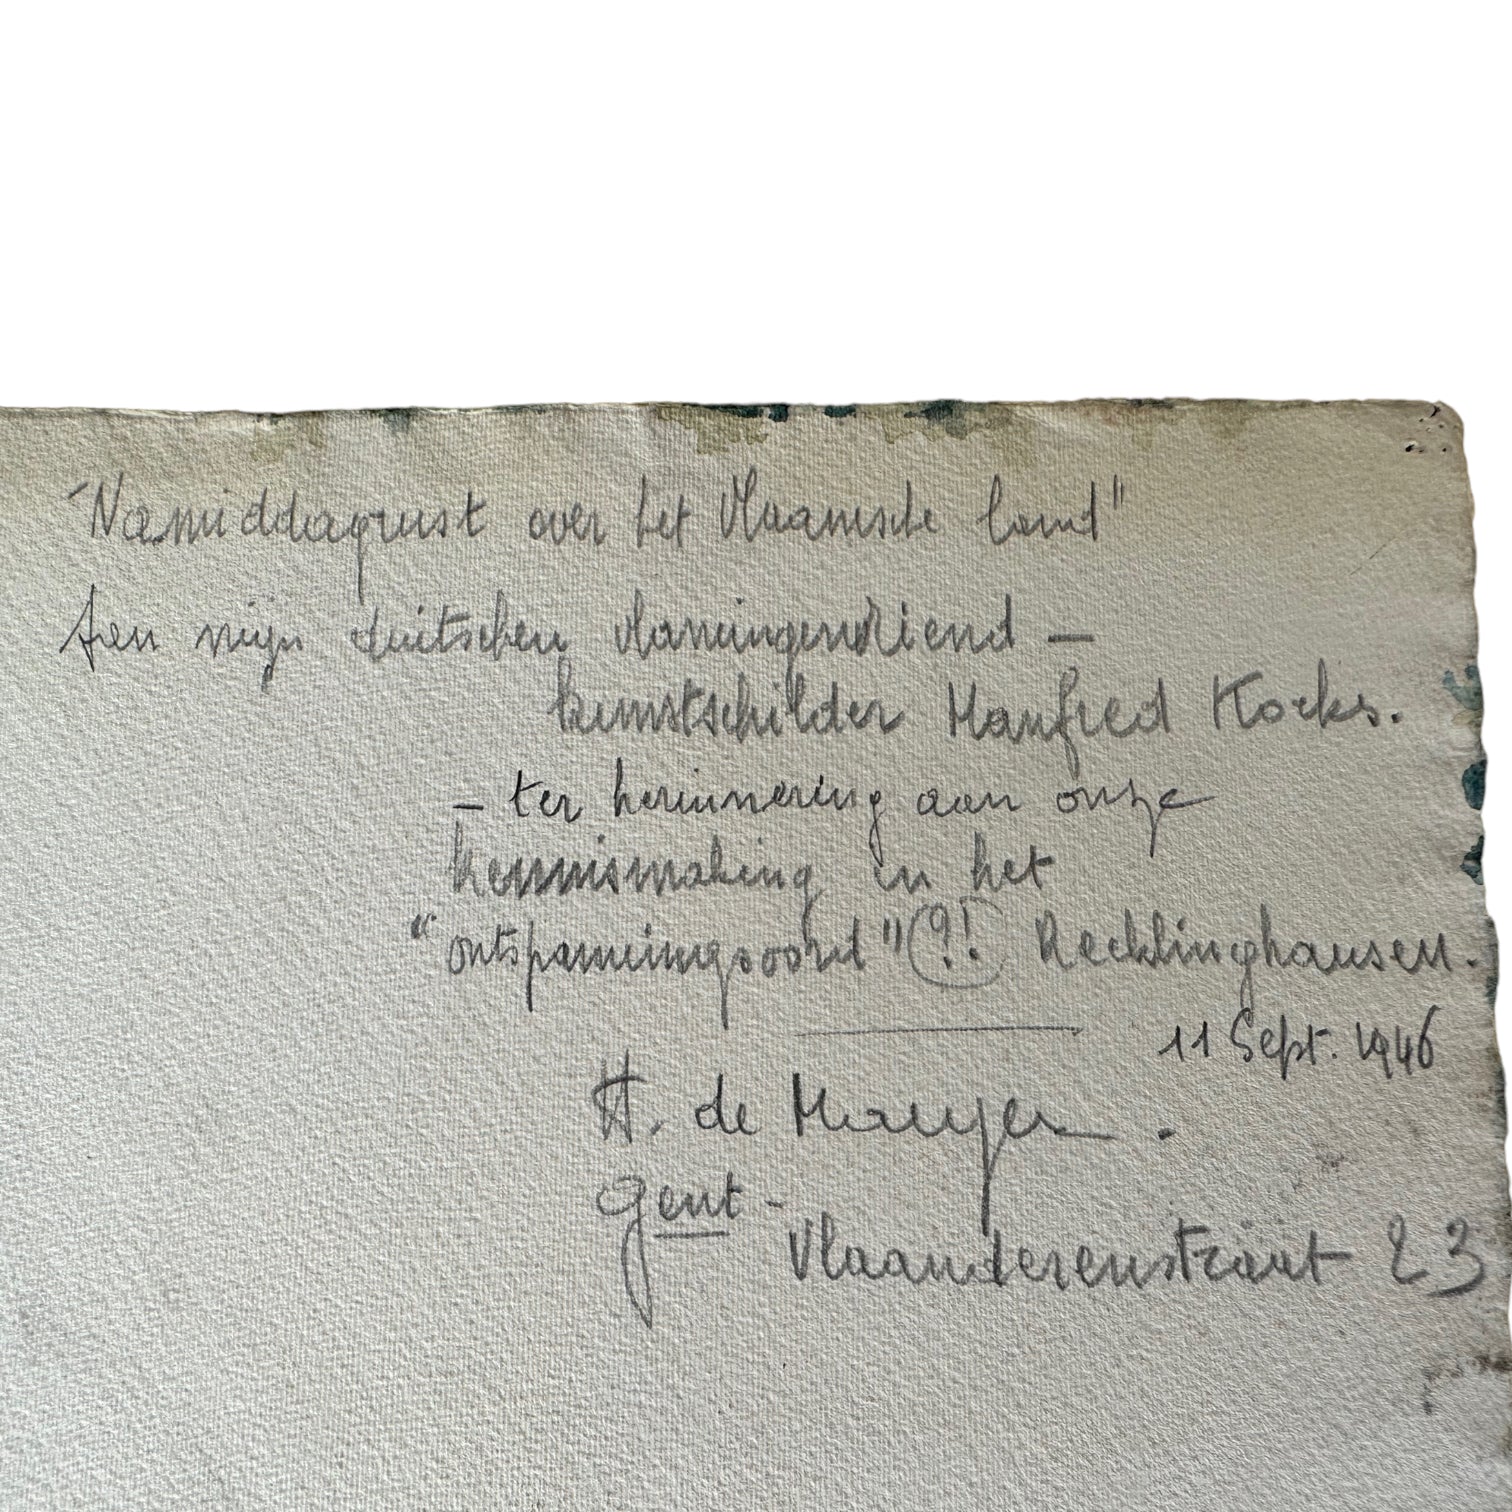 "Namiddagrust over het Vlaamsche land"
Aen mijn duitschen vlamingenvriend —
kunstschilder Manfred Kocks.
— ter herinnering aan onze
kennismaking in het
"ontspanningsoord" (?!) Recklinghausen.
11 Sept. 1946
H. de Mauyer.
Gent -
Vlaanderenstraat 23